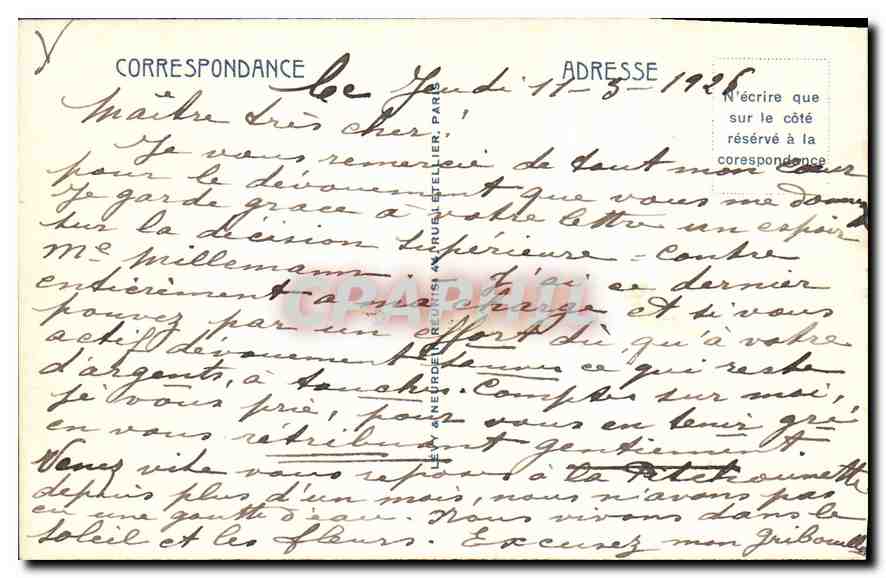 CORRESPONDANCE
ADRESSE
N'écrire que
sur le côté
réservé à la
corespondance
Ce Jeudi 11-3-1926
Maître très cher!
Je vous remercie de tout mon cœur
pour le dévouement que vous me donnez
Je garde grace a votre lettre un espoir
sur la décision supérieure = contre
Me Millemann — J'ai ce dernier
entièrement a ma charge et si vous
pouvez par un effort dû, qu'à votre
actif dévouement sauver ce qui reste
d'argents, à toucher. Comptez sur moi,
je vous prie, pour vous en tenir gré
en vous rétribuant gentiement.
Venez vite vous reposer à la Pitchounette
depuis plus d'un mois, nous n'avons pas
eu une goutte d'eau. Nous vivons dans le
soleil et les fleurs. Excusez mon Gribouillage
LÉVY & NEURDEIN RÉUNIS, 44, RUE LETELLIER, PARIS
CPAPHIL